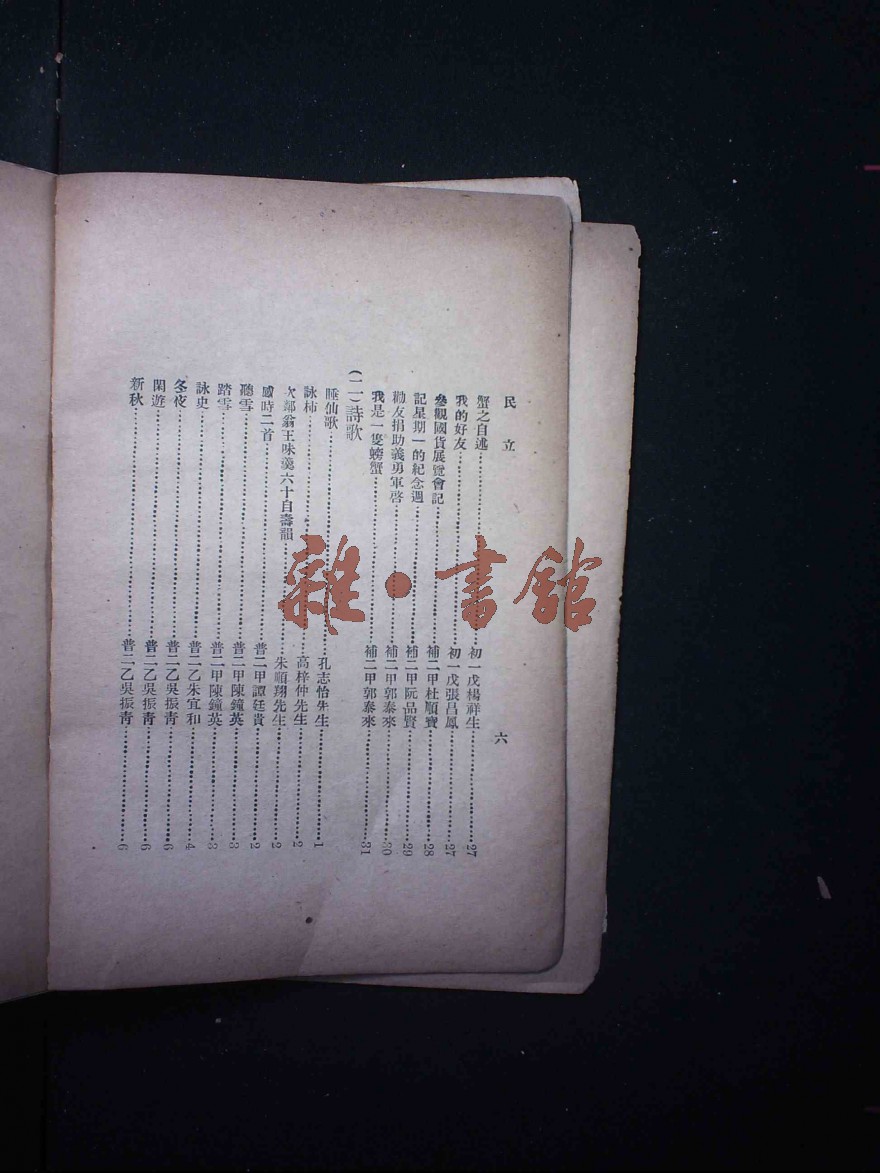 民立
六
蟹之自述……初一戊楊祥生……27
我的好友……初一戊張昌鳳……27
參觀國貨展覽會記……補二甲杜順寶……28
記星期一的紀念週……補二甲阮品賢……29
勸友捐助義勇軍啓……補二甲郭泰來……30
我是一隻螃蟹……補二甲郭泰來……31
(二)詩歌
睡仙歌……孔志怡先生……1
詠柿……高梓仲先生……2
次鄰翁王味羹六十自壽韻……朱順翔先生……2
感時二首……普二甲譚廷貴……2
聽雪……普二甲陳鐘英……3
踏雪……普二甲陳鐘英……3
詠史……普二乙朱宜和……4
冬夜……普二乙吳振青……6
閑遊……普二乙吳振青……6
新秋……普二乙吳振青……6
雜·書館